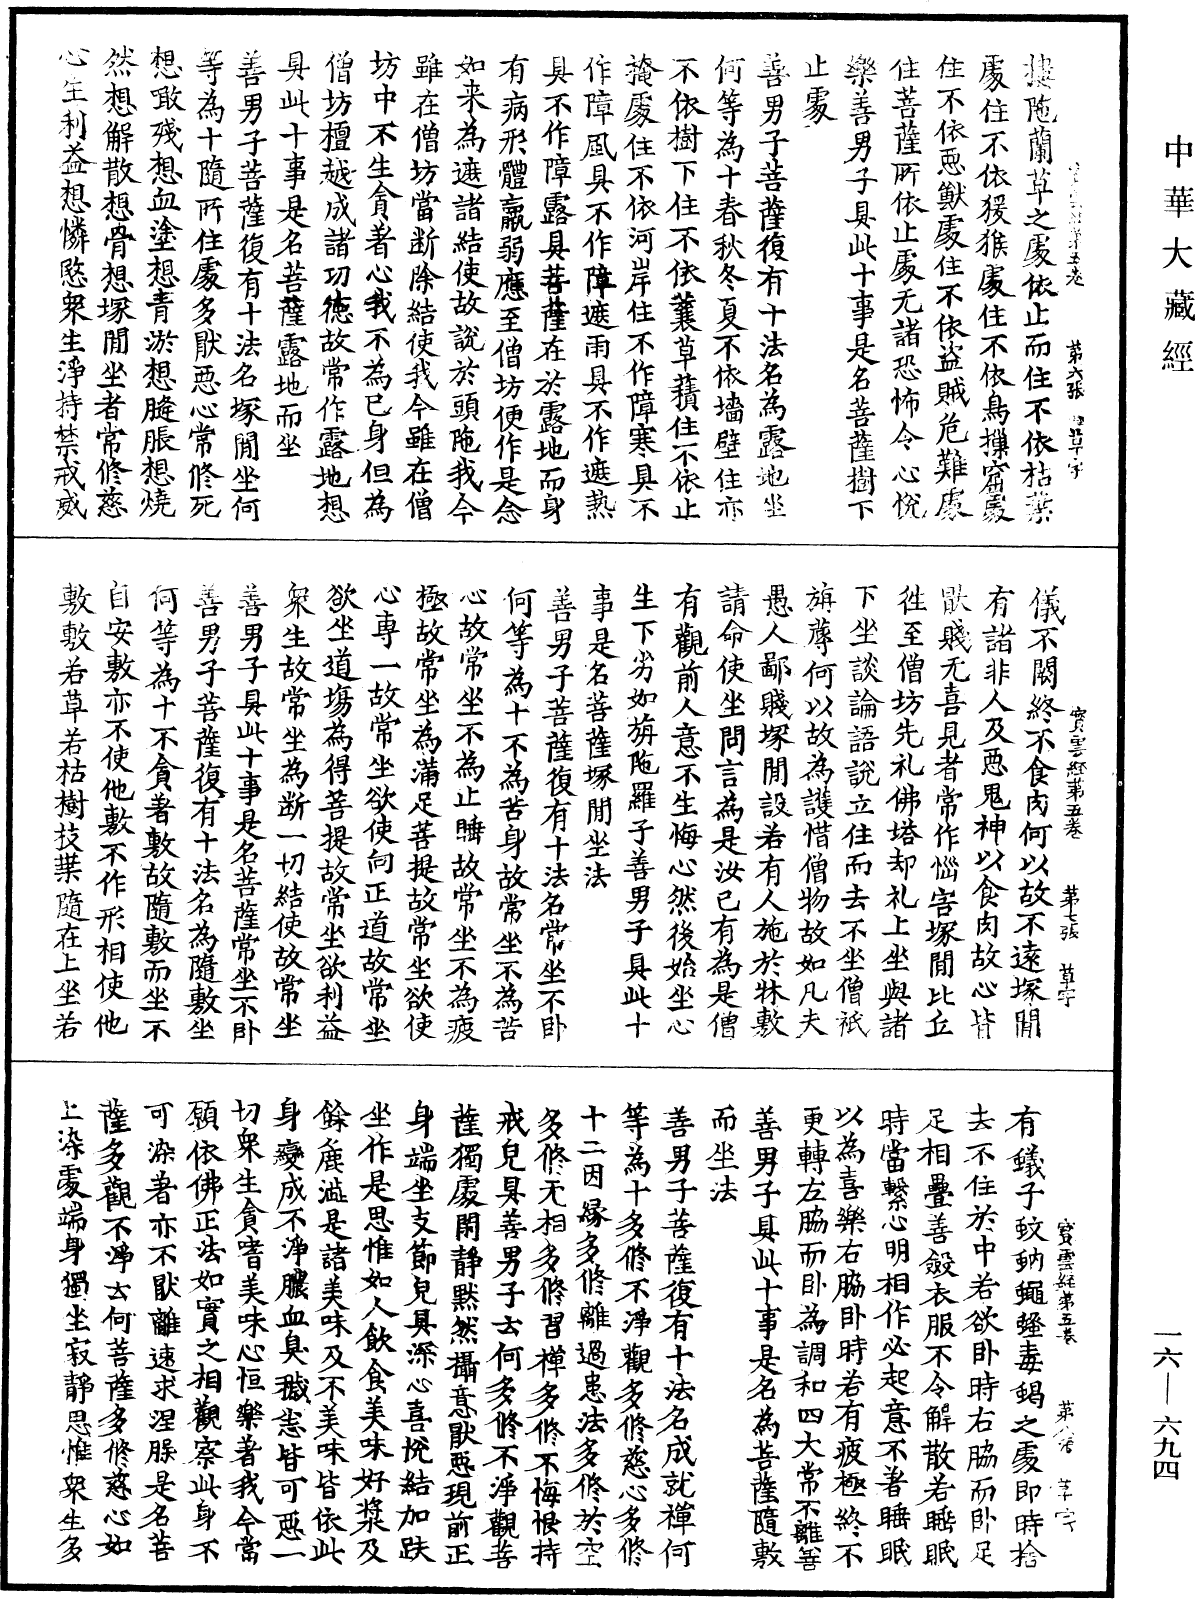 中華大藏經
第六張
草字
捿陁蘭草之處依止而住不依枯葉
處住不依猨猴處住不依鳥摷窟處
住不依惡獸處住不依盜賊危難處
住菩薩所依止處无諸恐怖令心悅
樂善男子具此十事是名菩薩樹下
止處
善男子菩薩復有十法名為露地坐
何等為十春秋冬夏不依墻壁住亦
不依樹下住不依蘘草積住不依止
掩處住不依河岸住不作障寒具不
作障風具不作障遮雨具不作遮熱
具不作障露具菩薩在於露地而身
有病形體羸弱應至僧坊便作是念
如来為遮諸結使故說於頭陁我今
雖在僧坊當斷除結使我今雖在僧
坊中不生貪著心我不為已身但為
僧坊檀越成諸功德故常作露地想
具此十事是名菩薩露地而坐
善男子菩薩復有十法名塚閒坐何
等為十隨所住處多猒惡心常修死
想噉殘想血塗想青淤想膖脹想燒
然想解散想骨想塚閒坐者常修慈
心生利益想憐愍衆生淨持禁戒威
寳雲經第五卷
第七張
草字
儀不闕終不食肉何以故不遠塚閒
有諸非人及惡鬼神以食肉故心皆
猒賤无喜見者常作惱害塚閒比丘
徃至僧坊先礼佛塔却礼上坐與諸
下坐談論語說立住而去不坐僧祇
旃蓐何以故為護惜僧物故如凡夫
愚人鄙賤塚閒設若有人施於牀敷
請命使坐問言為是汝已有為是僧
有觀前人意不生悔心然後始坐心
生下劣如旃陁羅子善男子具此十
事是名菩薩塚閒坐法
善男子菩薩復有十法名常坐不卧
何等為十不為苦身故常坐不為苦
心故常坐不為止睡故常坐不為疲
極故常坐為滿足菩提故常坐欲使
心專一故常坐欲使向正道故常坐
欲坐道塲為得菩提故常坐欲利益
衆生故常坐為斷一切結使故常坐
善男子具此十事是名菩薩常坐不卧
善男子菩薩復有十法名為隨敷坐
何等為十不貪著敷故隨敷而坐不
自安敷亦不使他敷不作形相使他
敷敷若草若枯樹枝葉隨在上坐若
寳雲經第五卷
第八張
草字
有蟻子蚊蚋蠅蛋毒蝎之處即時捨
去不住於中若欲卧時右脇而卧足
足相疊善殽衣服不令解散若睡眠
時當繫心明相作必起意不著睡眠
以為喜樂右脇卧時若有疲極終不
更轉左脇而卧為調和四大常不離善
善男子具此十事是名為菩薩隨敷
而坐法
善男子菩薩復有十法名成就禪何
等為十多修不淨觀多修慈心多修
十二因緣多修離過患法多修於空
多修无相多修習禪多修不悔恨持
戒皃具善男子云何多修不淨觀菩
薩獨處閑静黙然攝意猒惡現前正
身端坐支節皃具深心喜悅結加趺
坐作是思惟如人飲食美味好漿及
餘麁澁是諸美味及不美味皆依此
身變成不淨膿血臭穢㤪皆可惡一
切衆生貪嗜美味心恒樂著我今當
願依佛正法如實之相觀察此身不
可染著亦不猒離速求涅槃是名菩
薩多觀不淨云何菩薩多修慈心如
上染處端身獨坐寂靜思惟衆生多
一六—六九四